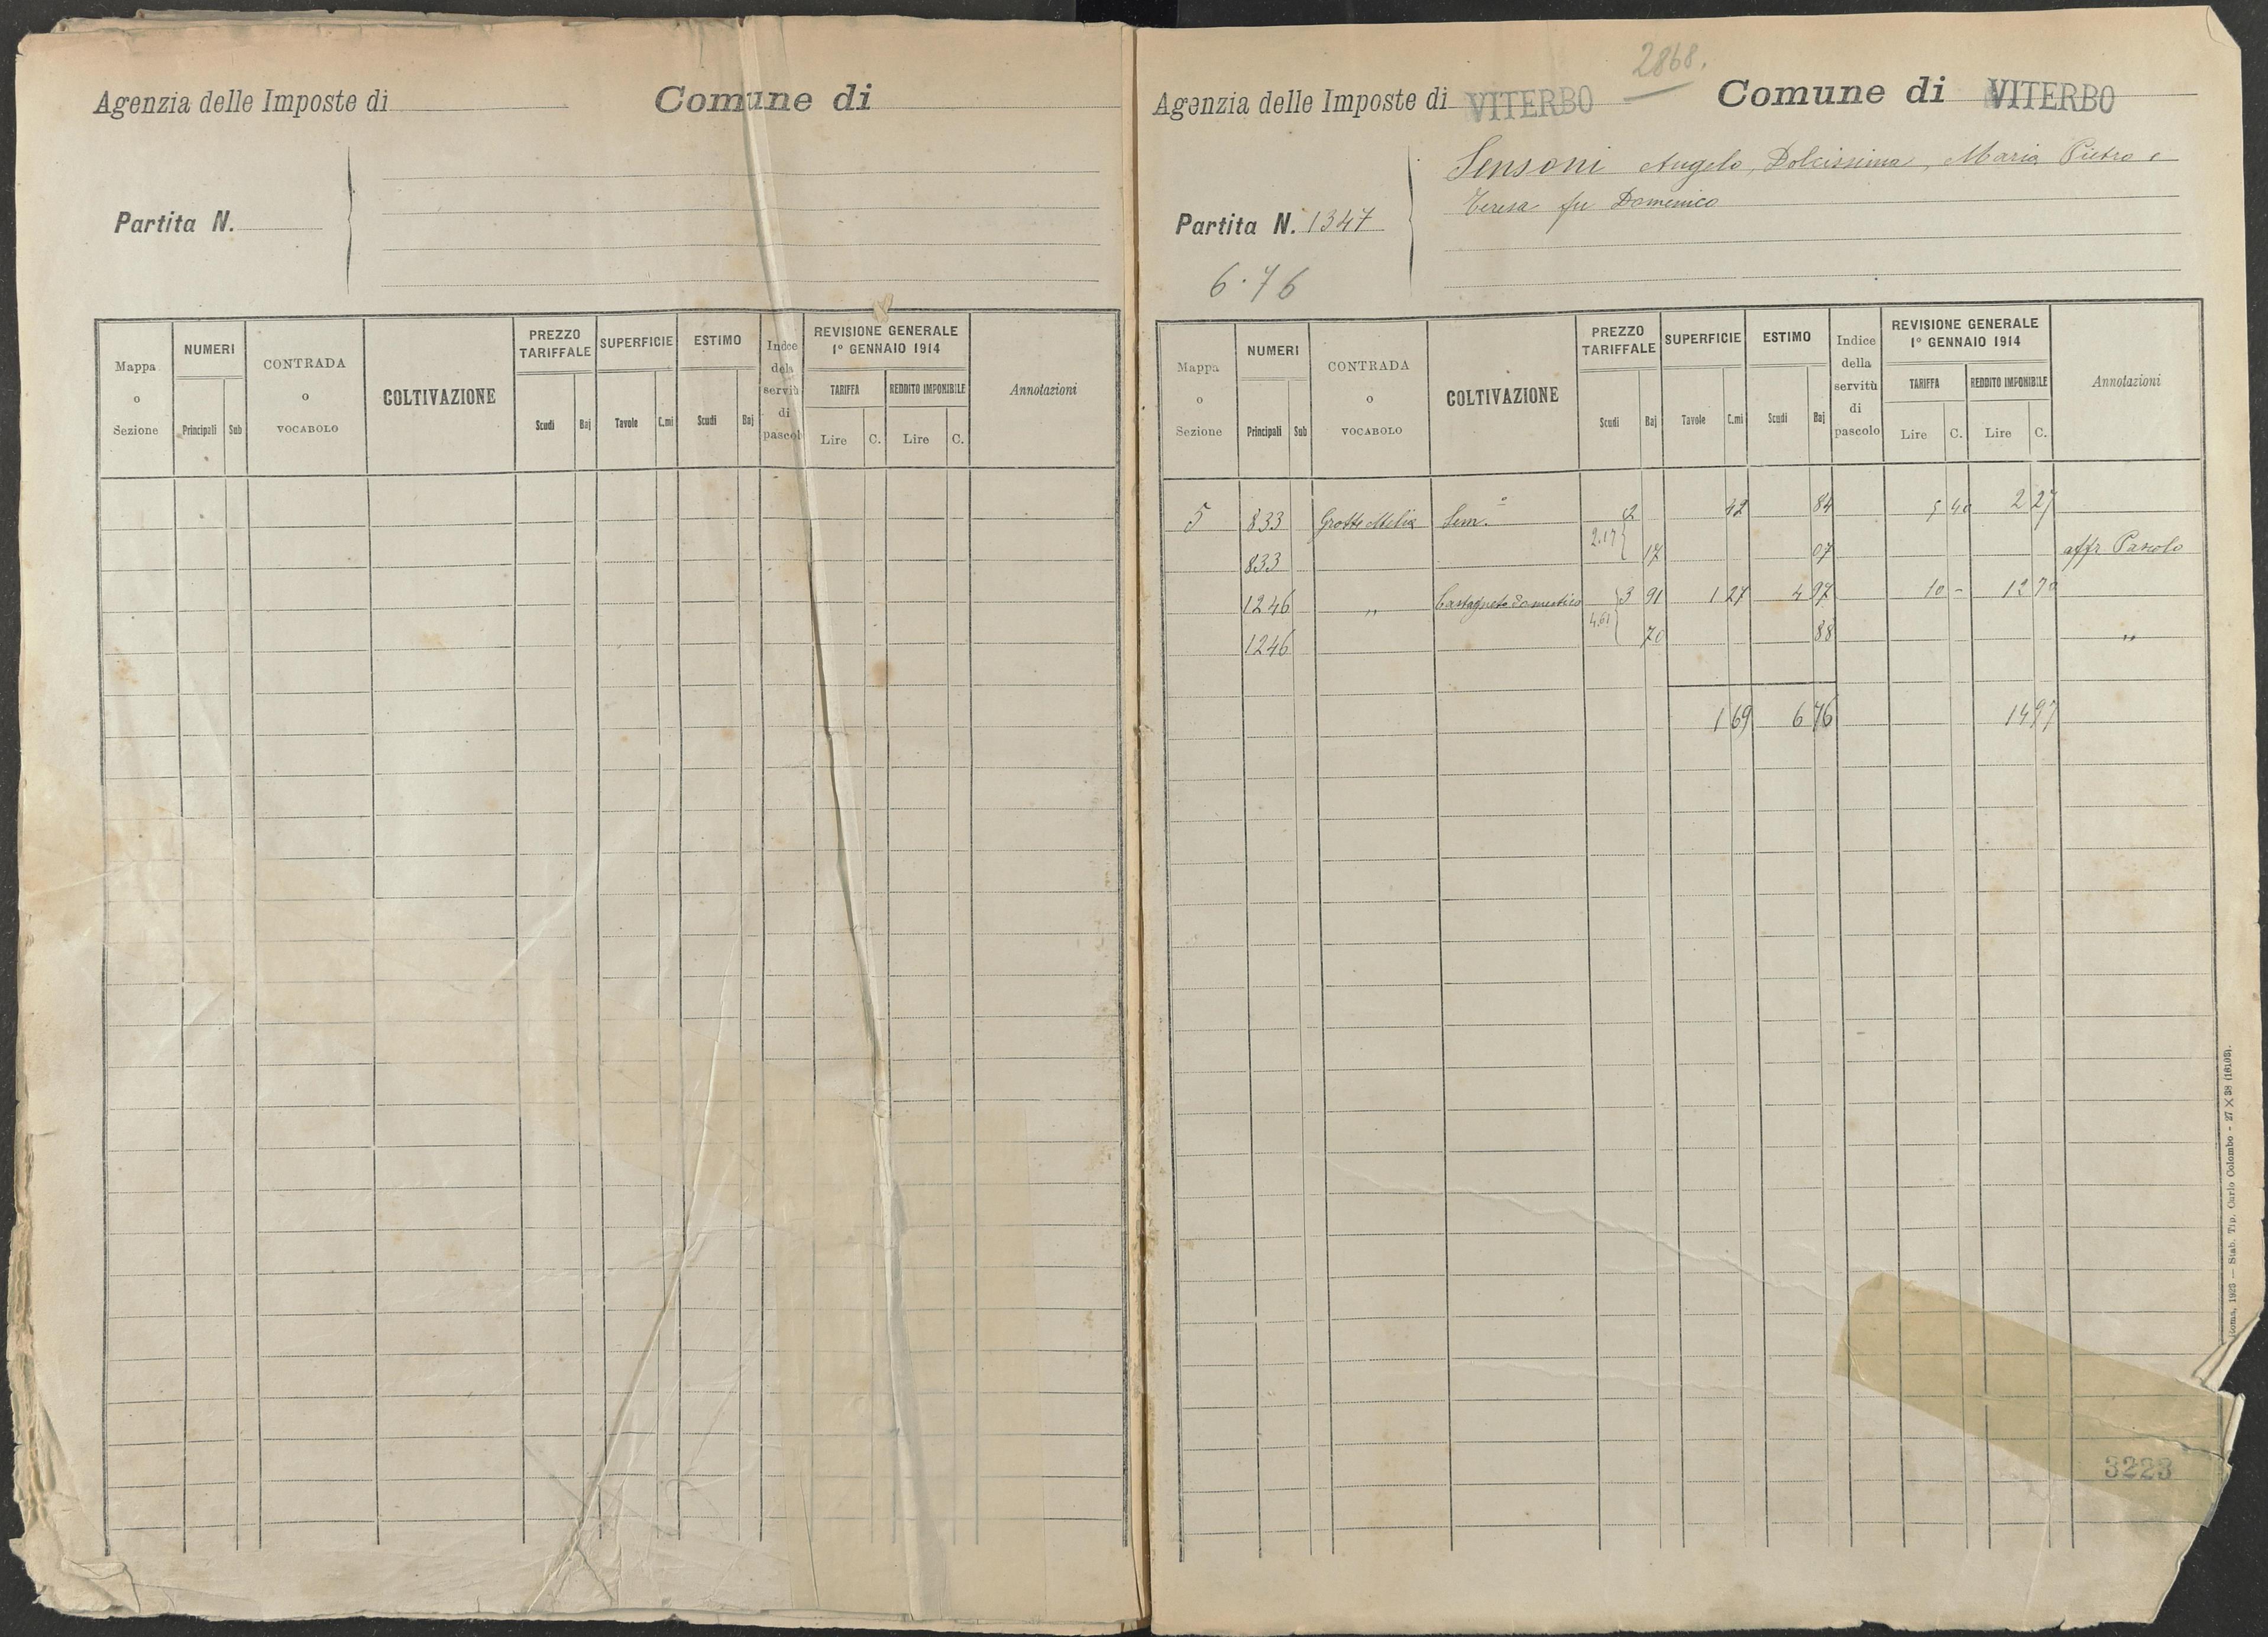 Agenzia delle Imposte di Comune di
Partita N.
Mappa o Sezione
NUMERI
Principali Sub
CONTRADA o VOCABOLO
COLTIVAZIONE
PREZZO TARIFFALE
Scudi Baj
SUPERFICIE
Tavole C.mi
ESTIMO
Scudi Baj
Indice della servitù di pascolo
REVISIONE GENERALE
1° GENNAIO 1914
TARIFFA REDDITO IMPONIBILE
Lire C. Lire C.
Annotazioni
2868.
Agenzia delle Imposte di VITERBO Comune di VITERBO
Sensoni Angelo, Dolcissima, Maria Pietro e
Teresa fu Domenico
Partita N. 1347
6.76
Mappa o Sezione
NUMERI
Principali Sub
CONTRADA o VOCABOLO
COLTIVAZIONE
PREZZO TARIFFALE
Scudi Baj
SUPERFICIE
Tavole C.mi
ESTIMO
Scudi Baj
Indice della servitù di pascolo
REVISIONE GENERALE
1° GENNAIO 1914
TARIFFA REDDITO IMPONIBILE
Lire C. Lire C.
Annotazioni
5 833 Grotte Sem.° 2 42 84 5 40 2 27
833 2.17 17 07 affr. Pascolo
1246 " Castagneto domestico 3 91 1 27 4 97 10 - 12 70
1246 4.61 70 88 "
1 69 6 76 14 97
Roma, 1925 — Stab. Tip. Carlo Colombo - 27 X 38 (16108).
3223